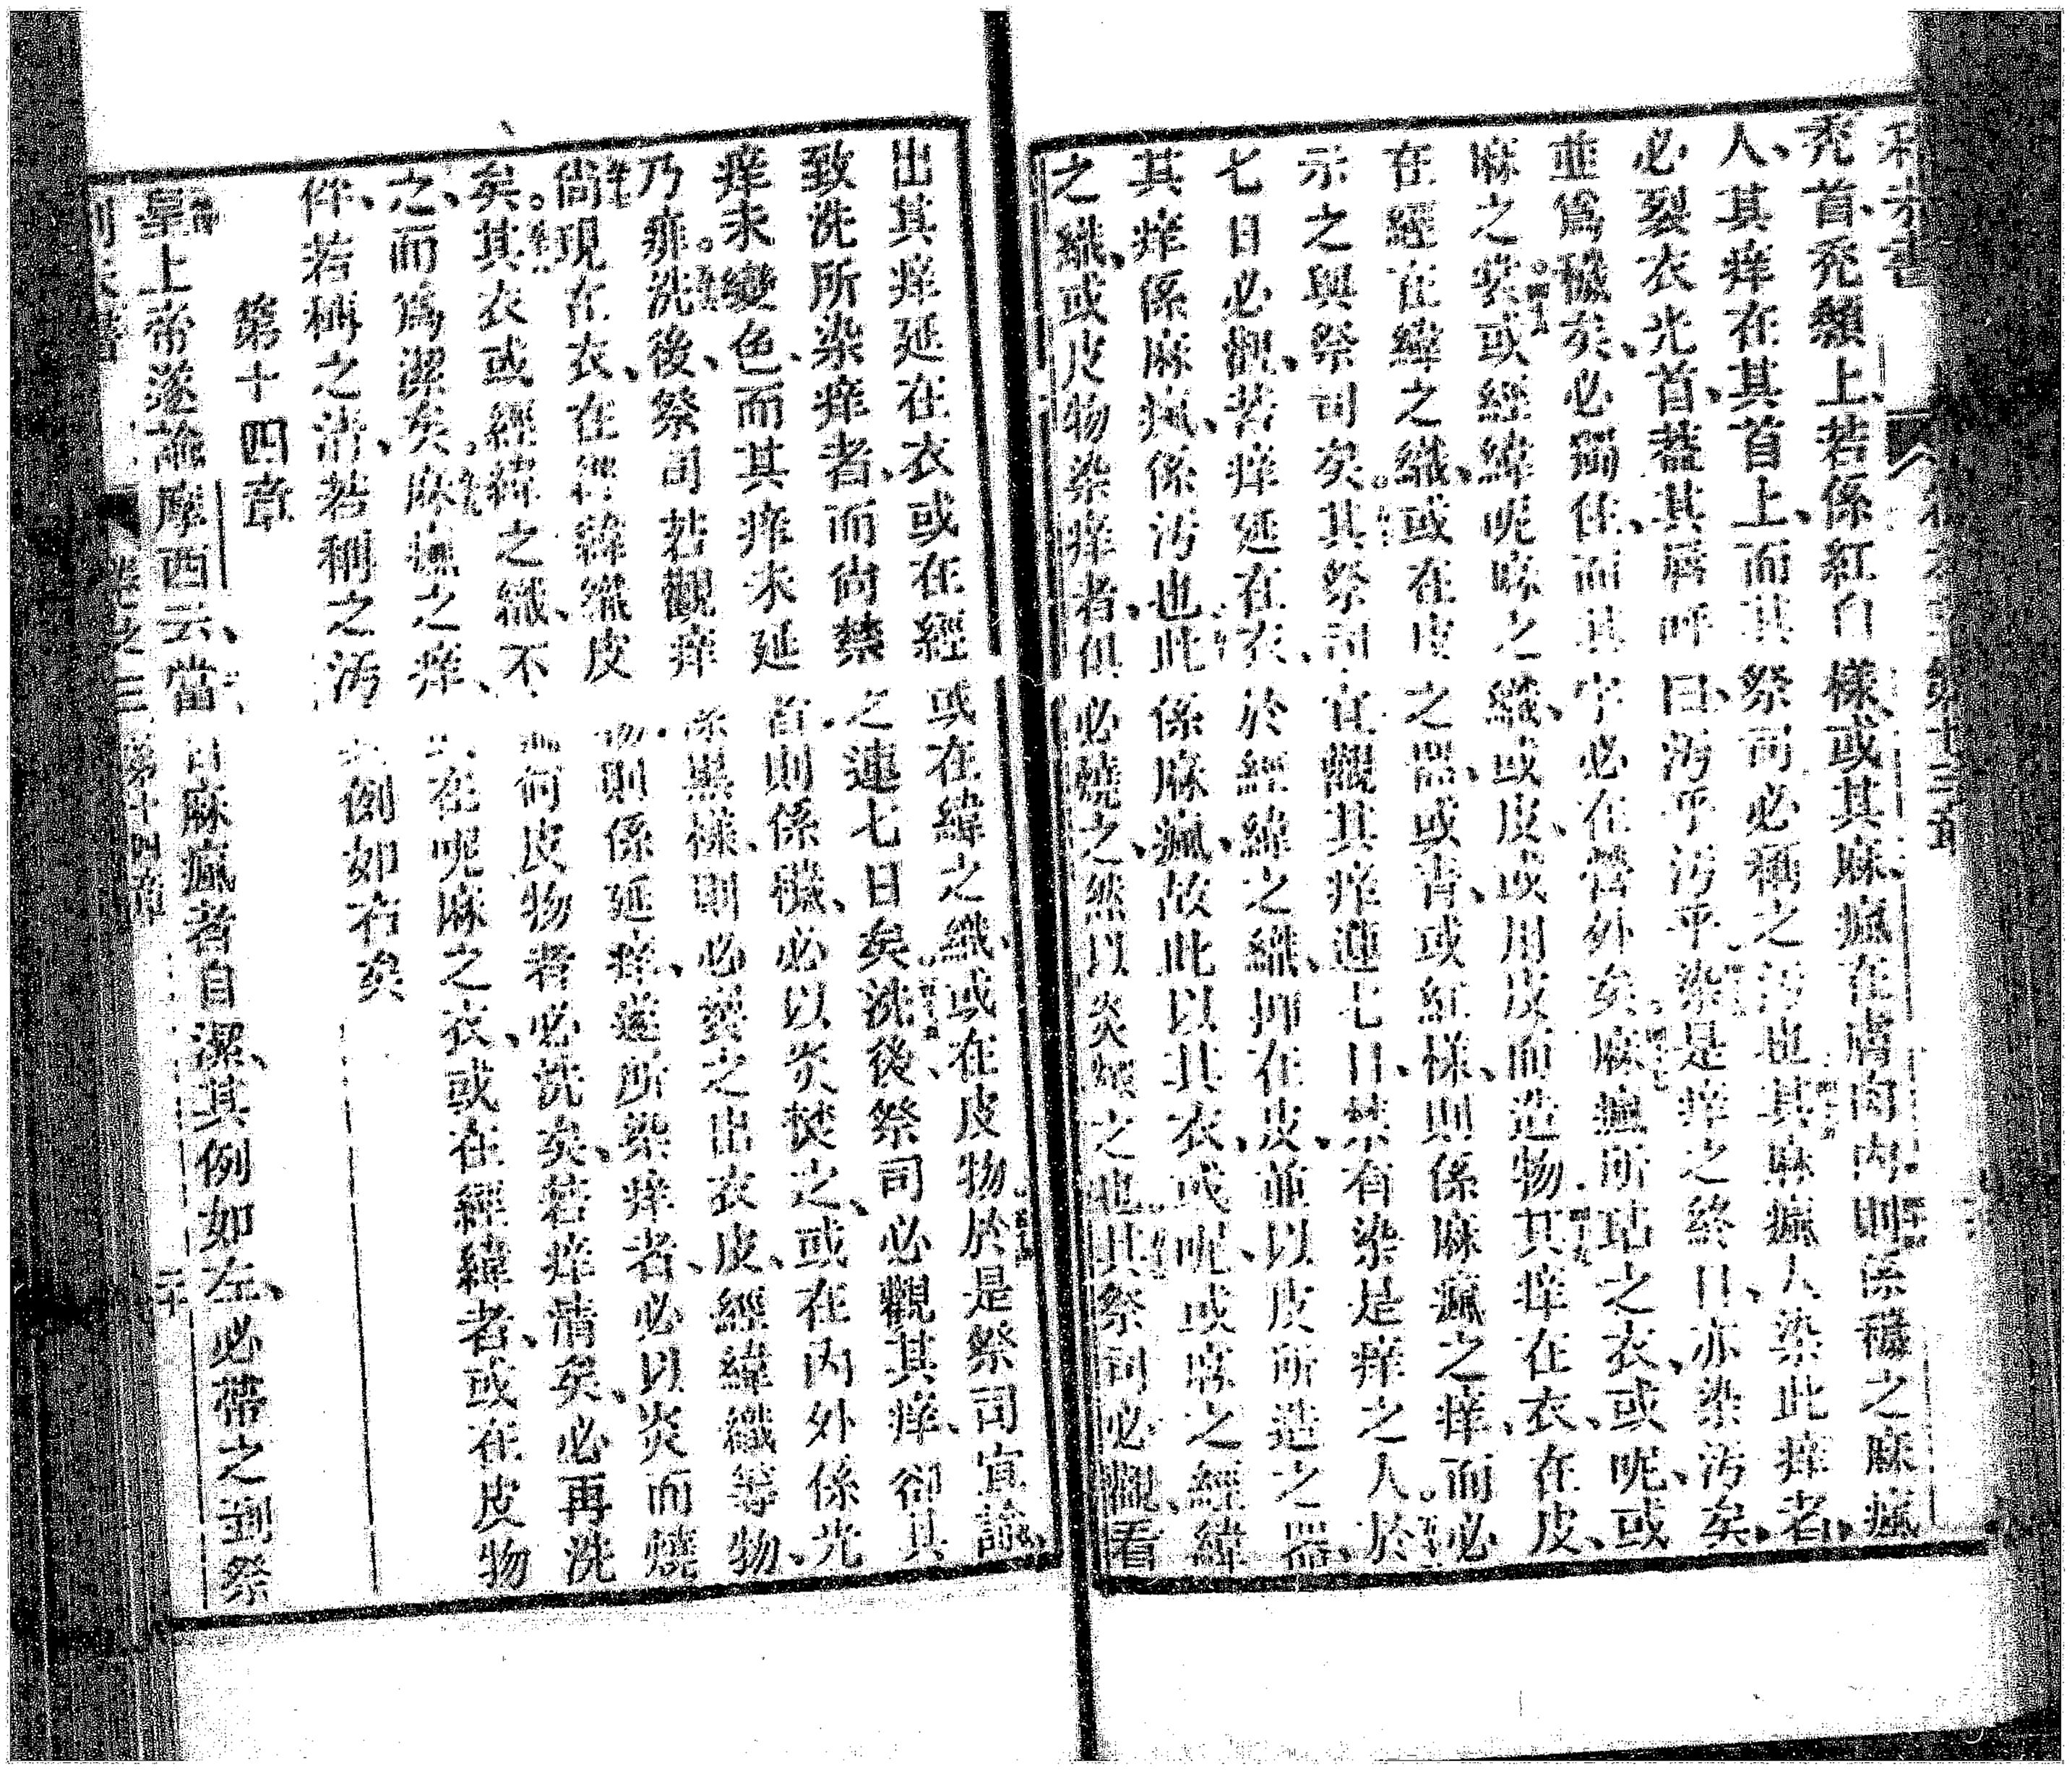 禿首、禿類上、若係紅白樣、或其麻瘋在膚肉內、則係穢之麻瘋
人、其痒在其首上、而其祭司必稱之污也其麻瘋人染此痒者、
必裂衣光首、蓋其唇呼曰、污乎污乎染是痒之終日、亦染污矣、
並爲穢矣、必獨住、而其字必在營外矣。麻瘋所玷之衣、或呢、或
麻之裳或經緯呢麻之織、或皮、或用皮而造物其痒在衣、在皮、
在經在緯之織、或在皮之器、或青、或紅樣、則係麻瘋之痒、而必
示之與祭司矣。其祭司宜觀其痒連七日、禁有染是痒之人。於
七日必觀、若痒延在衣、於經緯之織、抑在皮、並以皮所造之器、
其痒係麻瘋、係污也此係麻瘋、故此以其衣、或呢、或麻之經緯
之織、或皮物染痒者、俱必燒之、然以炎燬之也其祭司必觀、看
出其痒延在衣或在經或在緯之織、或在皮物於是祭司宜諭、
致洗所染痒者、而尚禁之連七日矣。洗後、祭司必觀其痒、卻其
痒未變色、而其痒未延者、則係穢、必以炎焚之、或在內外係光
乃痒。洗後、祭司若觀痒係黑樣、則必裂之出衣皮、經緯織等物、
尚現在衣、在經緯織皮物、則係延痒、遂所染痒者、必以炎而燒
矣。其衣或經緯之織、不論何皮物者必洗矣、若痒清矣、必再洗
之、而爲潔矣。麻瘋之痒、在呢麻之衣、或在經緯者、或在皮物
件、若稱之清、若稱之污、例如右矣
第十四章
皇上帝遂諭摩西云、當日麻瘋者自潔、其例如左、必帶之到祭